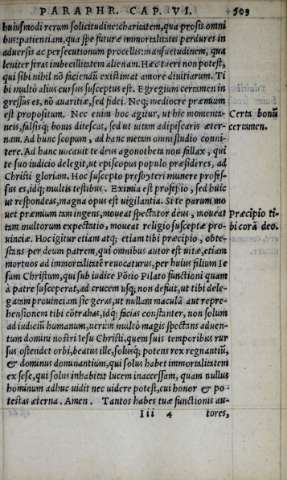 PARAPHR. CAP. VI. 503
huiusmodi rerum solicitudine: charitatem, qua prosis omni
bus: patientiam, qua spe futuræ immortalitatis perdures in
aduersis ac persecutionum procellis: mansuetudinem, qua
leniter feras imbecillitatem alienam. Hæc taeri non potest,
qui sibi nihil nō faciendū existimat amore diuitiarum. Ti
bi multò alius cursus susceptus est. Egregium certamen in
gressus es, nō auaritiæ, sed fidei. Neq; mediocre præmium
est propositum. Nec enim hoc agitur, ut hic momenta-
neis, falsisq; bonis ditescas, sed ut uitam adipiscaris æter-
nam. Ad hunc scopum, ad hanc metam omni studio conni
tere. Ad hanc uocauit te deus agonotheta non fallax, qui
te suo iudicio delegit, ut episcopus populo præsideres, ad
Christi gloriam. Hoc suscepto presbyteri munere profes-
sus es, idq; multis testibus. Eximia est professio, sed huic
ut respondeas, magna opus est uigilantia. Si te parum mo
uet præmium tam ingens, moueat spectator deus, moueat
tam multorum expectatio, moueat religio susceptæ pro-
uinciæ. Hoc igitur etiam atq; etiam tibi præcipio, obte-
stans per deum patrem, qui omnibus autor est uitæ, etiam
mortuos ad immortalitatē reuocaturus, per huius filium Ie
sum Christum, qui sub iudice Pōtio Pilato functioni quam
à patre susceperat, ad crucem usq; non defuit, ut tibi dele-
gatam prouinciam sic geras, ut nullam maculā aut repre-
hensionem tibi cōtrahas, idq; facias constanter, non solum
ad iudicīū humanum, uerum multò magis spectans aduen-
tum domini nostri Iesu Christi, quem suis temporibus rur
sus ostendet orbi, beatus ille, solusq; potens rex regnantiū,
& dominus dominantium, qui solus habet immortalitatem
ex sese, qui solus inhabitat lucem inaccessam, quam nullus
hominum adhuc uidit nec uidere potest, cui honor & po-
testas æterna. Amen. Tantos habes tuæ functionis au-
Iii 4 tores,
Certa bonū
certamen.
Præcipio ti-
bi corā deo.